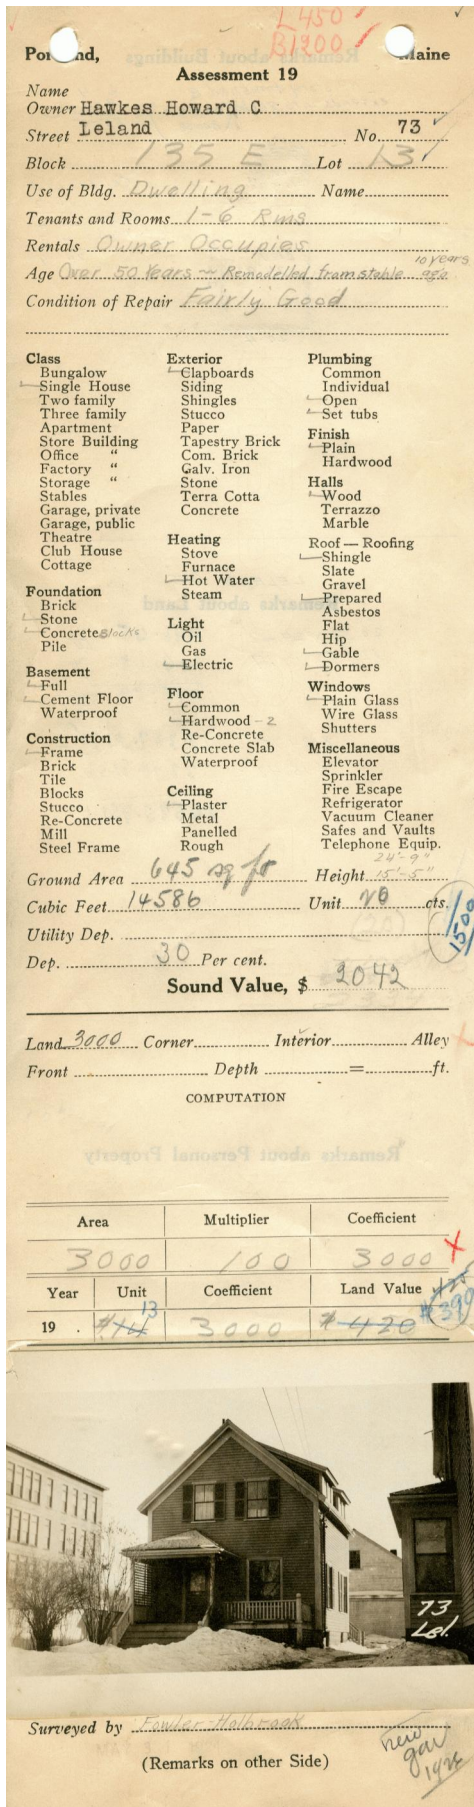 L450
B1200
Portland, Maine
Assessment 19
Name
Owner Hawkes Howard C
Street Leland No. 73
Block 135 E Lot 13
Use of Bldg. Dwelling Name
Tenants and Rooms 1-6 Rms
Rentals Owner Occupies
Age Over 50 Years - Remodelled from stable 10 years ago
Condition of Repair Fairly Good
Class
Bungalow
Single House
Two family
Three family
Apartment
Store Building
Office "
Factory "
Storage "
Stables
Garage, private
Garage, public
Theatre
Club House
Cottage
Foundation
Brick
Stone
Concrete Blocks
Pile
Basement
Full
Cement Floor
Waterproof
Construction
Frame
Brick
Tile
Blocks
Stucco
Re-Concrete
Mill
Steel Frame
Exterior
Clapboards
Siding
Shingles
Stucco
Paper
Tapestry Brick
Com. Brick
Galv. Iron
Stone
Terra Cotta
Concrete
Heating
Stove
Furnace
Hot Water
Steam
Light
Oil
Gas
Electric
Floor
Common
Hardwood - 2
Re-Concrete
Concrete Slab
Waterproof
Ceiling
Plaster
Metal
Panelled
Rough
Plumbing
Common
Individual
Open
Set tubs
Finish
Plain
Hardwood
Halls
Wood
Terrazzo
Marble
Roof — Roofing
Shingle
Slate
Gravel
Prepared
Asbestos
Flat
Hip
Gable
Dormers
Windows
Plain Glass
Wire Glass
Shutters
Miscellaneous
Elevator
Sprinkler
Fire Escape
Refrigerator
Vacuum Cleaner
Safes and Vaults
Telephone Equip.
24'-9"
Ground Area 645 sq ft Height 15'-5"
Cubic Feet 14586 Unit 20 cts.
1500
Utility Dep.
Dep. 30 Per cent.
Sound Value, $ 2042
Land 3000 Corner Interior Alley
Front Depth = ft.
COMPUTATION
Area Multiplier Coefficient
3000 100 3000
Year Unit Coefficient Land Value
19 . $14 13 3000 $420 $390
73
Lel.
Surveyed by Fowler-Holbrook
(Remarks on other Side)
new
gar
1926